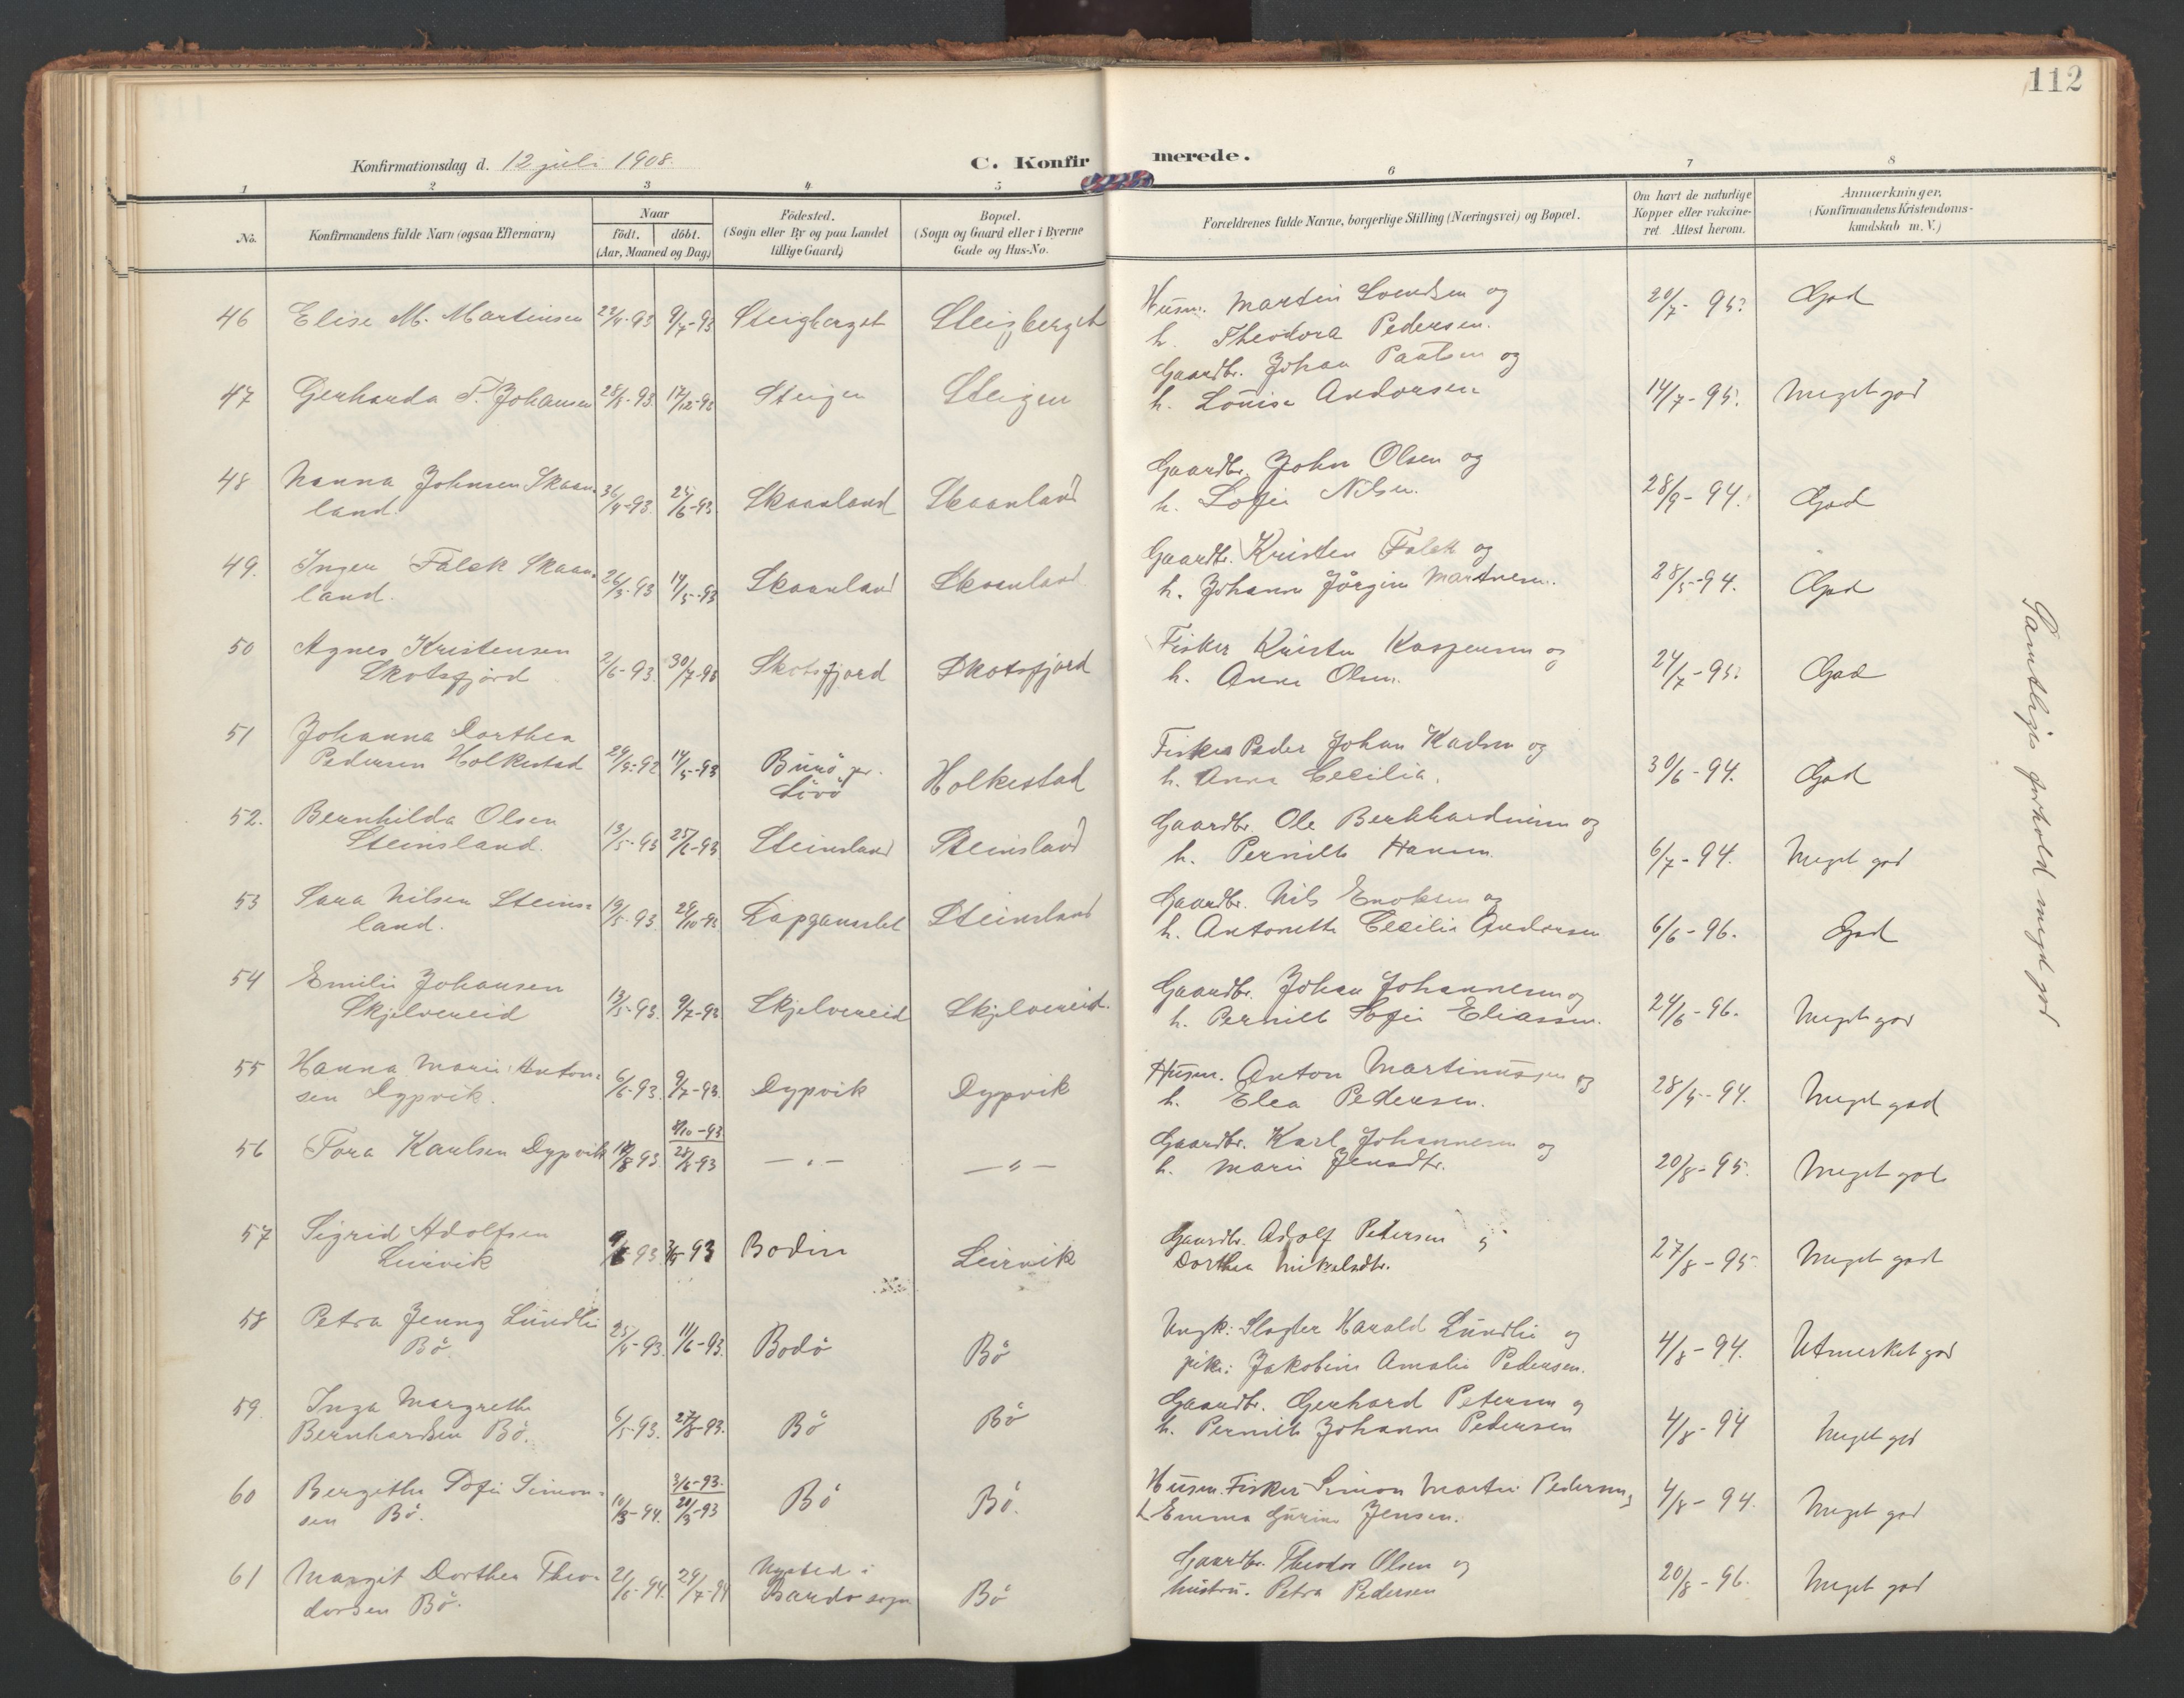 112
Konfirmationsdag d. 12 juli 1908.
C. Konfirmerede.
1 2 3 4 5 6 7 8
No.
Konfirmandens fulde Navn (ogsaa Efternavn)
Naar
födt. döbt.
(Aar, Maaned og Dag)
Födested.
(Sogn eller By og paa Landet
tillige Gaard)
Bopæl.
(Sogn og Gaard eller i Byerne
Gade og Hus-No.
Forældrenes fulde Navne, borgerlige Stilling (Næringsvei) og Bopæl.
Om havt de naturlige
Kopper eller vakcine-
ret. Attest herom.
Anmærkninger.
(Konfirmandens Kristendoms-
kundskab m. V.)
46 Elise M. Martinsen 9/7-93 Steigberget Steigberget
Husm. Martin Svendsen og
h. Theodora Pedersen.
20/7-95. God
47 Gerharda T. Johansen 17/12-93 Steigen Steigen
Gaardbr. Johan Paulsen og
h. Louise Andorsen
14/7-95. Meget god
48 Nanna Johnsen Skaan-
land. 25/6-93 Skaanland Skaanland
Gaardbr. John Olsen og
h. Sofie Nilsen.
28/9-94. God
49. Inger Falck Skaan-
land. 26/3-93 14/5-93 Skaanland Skaanland
Gaardbr. Kristen Falck og
h. Johanna Jörgine Martinesen.
28/5-94. God
50 Agnes Kristensen
Skotsfjord 2/6-93. 30/7-93 Skotsfjord Skotsfjord
Fisker Kristen Kaspersen og
h. Anna Olsen.
24/7-95. God
51 Johanna Dorthea
Pedersen Holkestad 14/5-93 Holkestad
Fisker Peder Johan Karlsen og
h. Anna Cecilia.
30/6-94. God
52. Bernhilda Olsen
Steinsland. 13/5-93 25/6-93 Steinsland Steinsland
Gaardbr. Ole Bernhardinsen og
h. Pernille Hansen.
6/7-94. Meget god
53 Sara Nilsen Steins-
land. 19/5-93. 29/10-93 Steinsland
Gaardbr. Nils Enoksen og
h. Antonette Cecilie Andersen
6/6-96. God
54 Emilie Johansen
Skjelvereid 13/5-93. 9/7-93 Skjelvereid Skjelvereid.
Gaardbr. Johan Johannesen og
h. Pernille Sofie Eliassen.
24/6-96. Meget god
55 Hanna Marie Anton-
sen Dypvik. 6/6-93. 9/7-93. Dypvik Dypvik
Husm. Anton Martinussen og
h. Elea Pedersen.
Meget god
56 Tora Karlsen Dypvik 8/10-93
27/8-93 — " — — " —
Gaardbr. Karl Johannesen og
h. Marie Jensdtr.
20/8-95. Meget god
57 Sigrid Adolfsen
Leirvik Bodin Leirvik
Gaardbr. Adolf Petersen og
Dorthea Mikalsdtr.
27/8-95 Meget god
58 Petra Jenny Lundlie
Bö. 25/4-93. 11/6-93. Bodö Bö
Ungk: Slagter Harald Lundlie og
pike: Jakobine Amalie Pedersen.
4/8-94. Utmerket god
59. Inga Margrethe
Bernhardsen Bö. 6/5-93. 27/8-93. Bö Bö
Gaardbr. Gerhard Petersen og
h. Pernille Johanna Pedersen
4/8-94 Meget god
60 Bergithe Sofie Simon-
sen Bö. 10/3-94. 3/6-93.
20/3-93 Bö Bö.
Husm. Fisker Simon Martin Pedersen og
h. Emma Gurine Jensen.
4/8-94. Meget god
61 Margit Dorthea Theo-
dorsen Bö. 21/6-94. 29/7-94 Nysted i
Bardo sogn Bö
Gaardbr. Theodor Olsen og
hustru. Petra Pedersen
20/8-96. Meget god
Samtliges forhold meget god